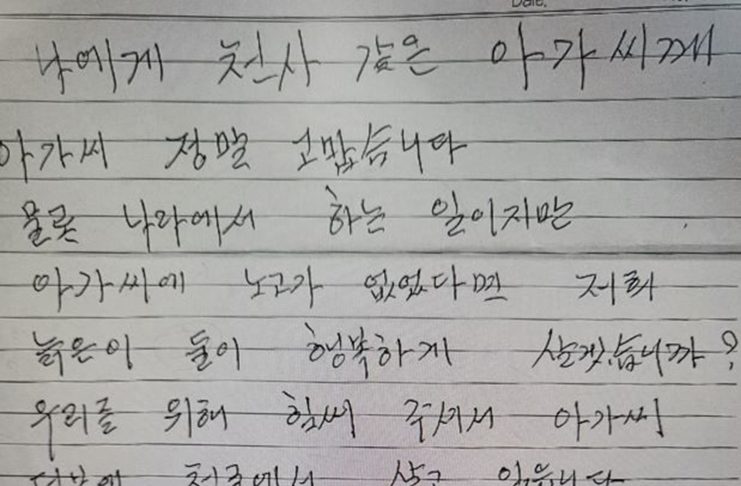 Date.
나에게 천사 같은 아가씨께
아가씨 정말 고맙습니다
물론 나라에서 하는 일이지만
아가씨에 노고가 없었다면 저희
늙은이 들이 행복하게 살겠습니까?
우리를 위해 힘써 주셔서 아가씨
덕분에 천국에서 살고 있습니다